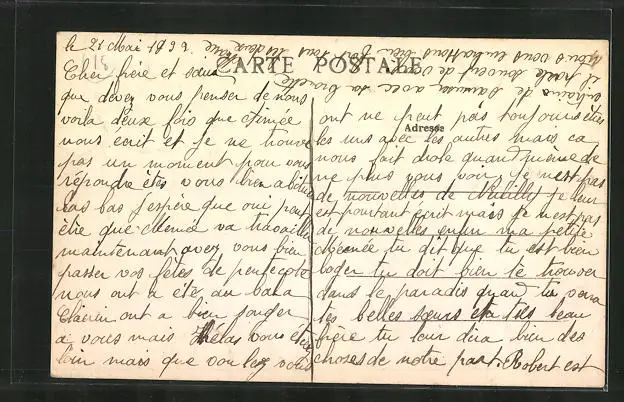 le 21 Mai 1933
CARTE POSTALE
Cher frère et sœur
que devez vous penser de nous
voila deux fois que Aimée
nous écrit et je ne trouve
pas un moment pour vous
répondre êtes vous bien
las bas J'espère que oui peut
être que va travailler
maintenant, avez vous bien
passer vos fêtes de pentecote
nous ont a été au bara
Clairin ont a bien songer
a vous mais Hélas vous êtes
loin mais que voulez vous
Adresse
ont ne peut pas toujours êtres
les uns avec les autres mais ca
nous fait drole quand même de
ne plus vous voir, Je n'est pas
de nouvelles de Neuilly Je leur
est pourtant écrit mais Je n'est pas
de nouvelles enfin ma petite
Aimée tu dit que tu est bien
loger tu doit bien te trouver
dans le paradis quand tu verra
tes belles sœurs et tes beau
frère tu leur dira bien des
choses de notre part. Robert est
entrain de s'amuser avec sa brouette
il parle souvent de vous
Nous vous embrassons bien fort tous les deux